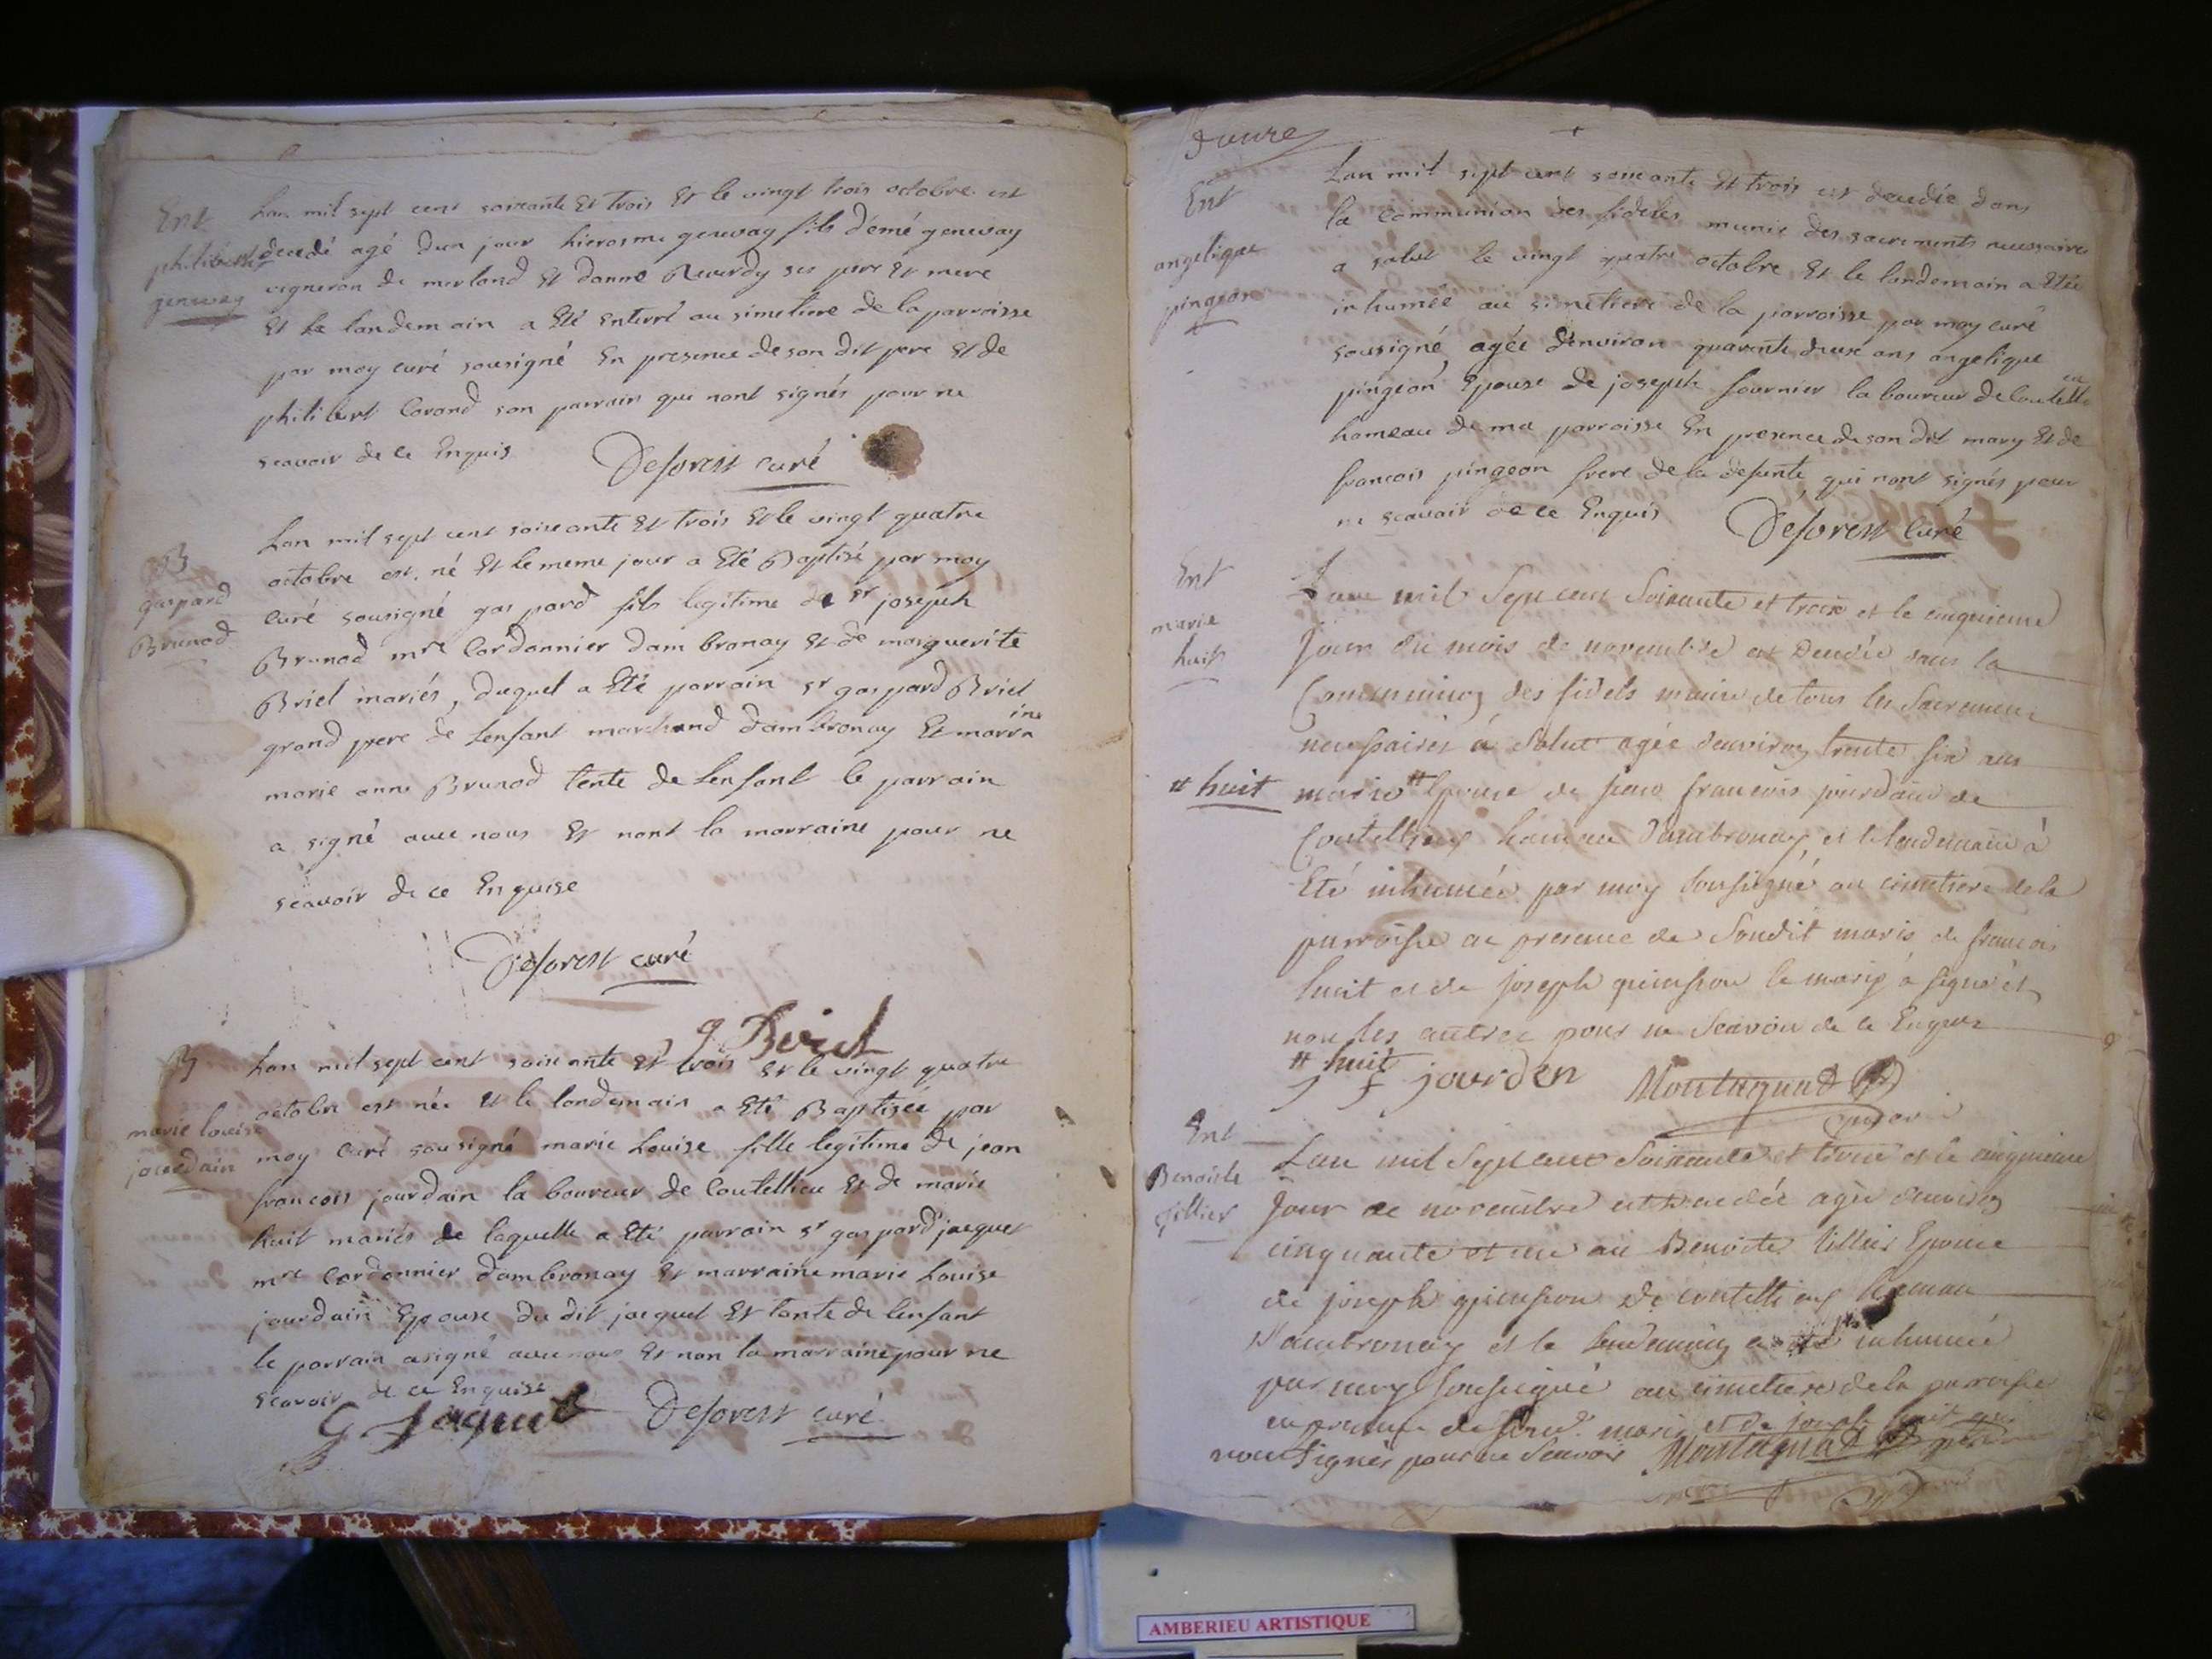 Ent
philibert
genevay
Lan mil sept cent soixante Et trois Et le vingt trois octobre est
decedé agé dun jour hierosme genevay fils d'émé genevay
vigneron de merland Et danne Reverdy ses pere Et mere
Et le landemain a Eté Enterré au simetiere de la parroisse
par moy curé sousigné En presence de son dit pere Et de
philibert Corand son parrain qui nont signés pour ne
scavoir de ce Enquis
Deforest curé
B
gaspard
Brunod
Lan mil sept cent soixante Et trois Et le vingt quatre
octobre est né Et le meme jour a Eté Baptisé par moy
curé sousigné gaspard fils legitime de sr joseph
Brunod mre Cordonnier dambronay Et de marguerite
Briel mariés, duquel a Eté parrain sr gaspard Briel
grand pere de Lenfant marchand dambronay Et marraine
marie anne Brunod tente de Lenfant le parrain
a signé avec nous Et nont la marraine pour ne
scavoir de ce Enquise
Deforest curé
g Briel
B
marie louise
jourdain
Lan mil sept cent soixante Et trois Et le vingt quatre
octobre est née Et le landemain a Eté Baptisée par
moy curé sousigné marie Louise fille legitime de jean
francois jourdain laboureur de Coutellieu Et de marie
huit mariés de laquelle a Eté parrain sr gaspard jacquet
mre Cordonnier dambronay Et marraine marie Louise
jourdain Epouse du dit jacquet Et tante de lenfant
le parrain a signé avec nous Et non la marraine pour ne
scavoir de ce Enquise
G Jaquet Deforest curé
Ent
angelique
pingeon
Lan mil sept cent soixante Et trois est decedée dans
la Communion des fideles munie des sacrements necessaires
a salut le vingt quatre octobre Et le landemain a Etée
inhumée au simetiere de la parroisse par moy curé
sousigné agée d'environ quarente deux ans angelique
pingeon Epouse de joseph fournier laboureur de Coutellieu
hameau de ma parroisse En presence de son dit mary Et de
francois pingeon frere de la defunte qui nont signés pour
ne scavoir de ce Enquis
Deforest Curé
Ent
marie
huit
Lan mil Sept cent Soixante et trois et le cinquieme
Jour du mois de novembre est Decedée dans la
Communion des fidels munie de tous les Sacremens
necessaires à Salut agée denviron trente six ans
# huit
marie # Epouse de jean francois jourdain de
Coutellieu hameau d'ambronay et le lendemain à
Eté inhumée par moy Sousigné au cimetiere de la
parroisse en presence de Sondit maris de francois
huit et de joseph quinson le mary à signé et
non les autres pour ne Scavoir de ce Enquis
# huit
j f jourden Montagnat
Ent
Benoiste
tillier
Lan mil Sept cent Soixante et trois et le cinquieme
Jour de novembre est decedée agée denviron
cinquante et un an Benoite tillier Epouse
de joseph quinson de coutellieu hameau
d'ambronay et le lendemain a été inhumée
par moy Sousigné au cimetiere de la parroisse
en presence de Sond. maris et de joseph huit qui
nont signés pour ne Scavoir Montagnat
AMBERIEU ARTISTIQUE